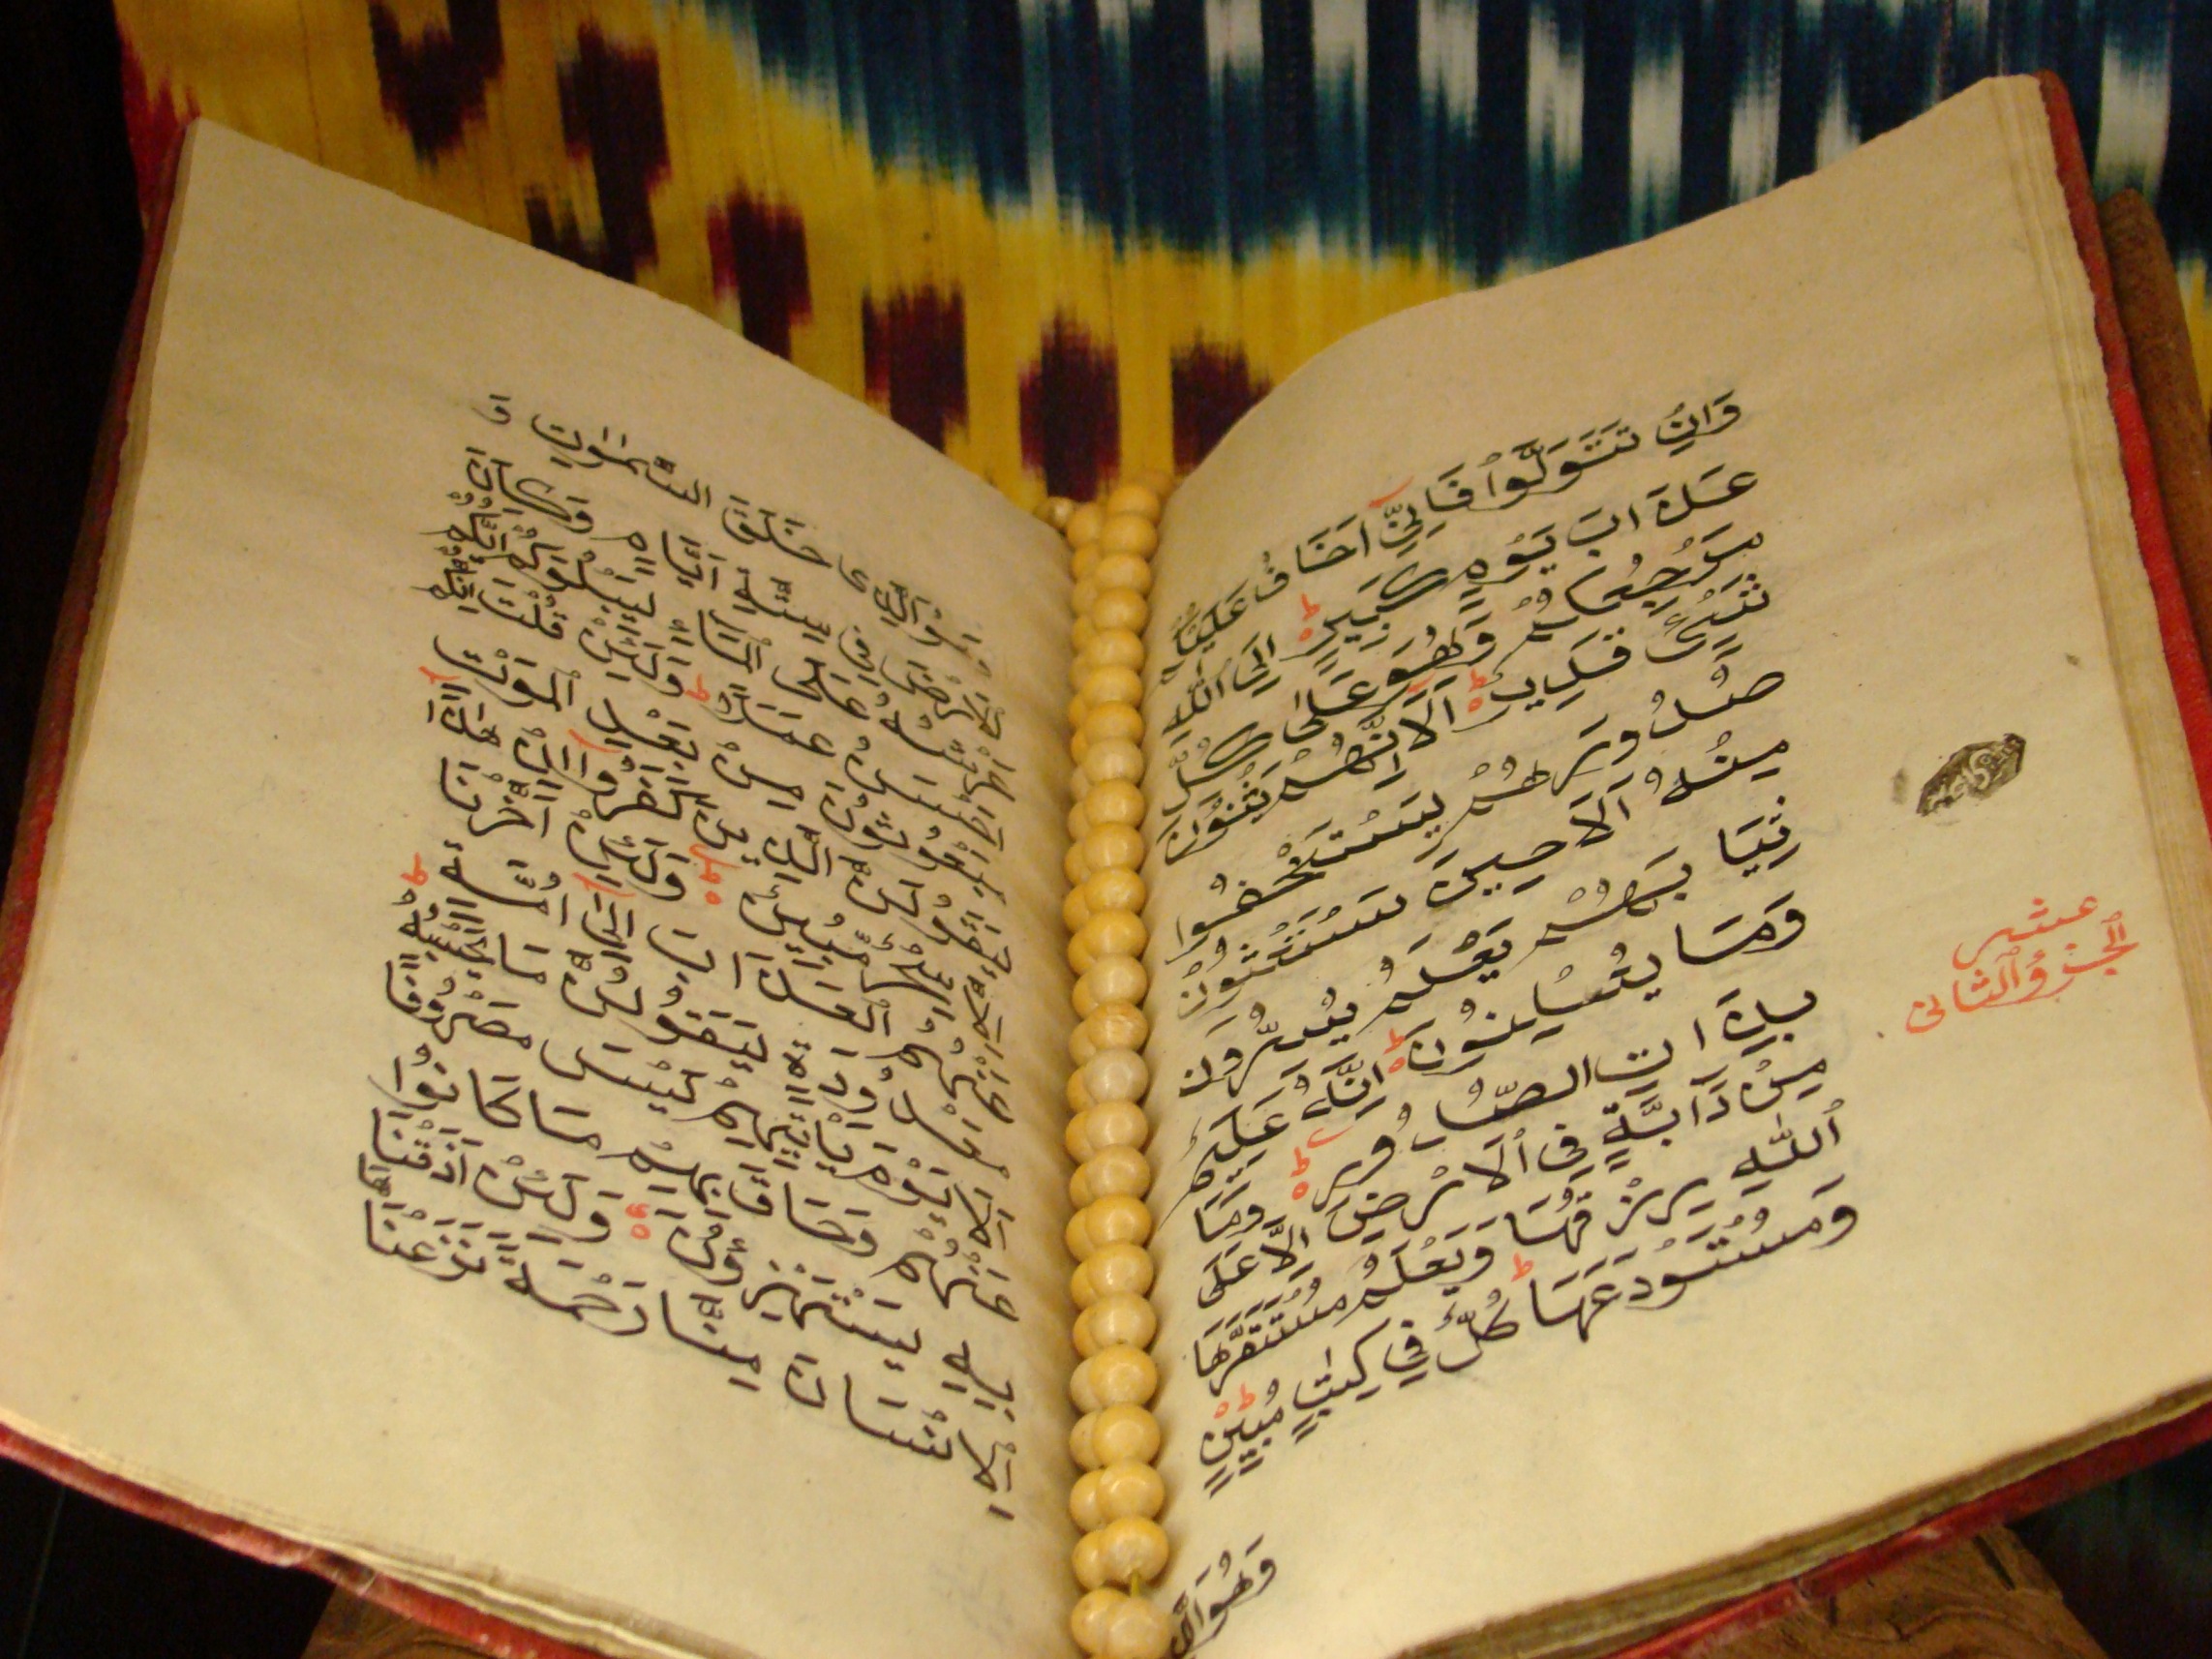 وَاِنْ تَتَوَلَّوْا فَاِنِّىْ اَخَافُ عَلَيْكُمْ
عَذَابَ يَوْمٍ كَبِيْرٍ ط اِلَى اللّٰهِ
مَرْجِعُكُمْ وَهُوَ عَلٰى كُلِّ
شَيْءٍ قَدِيْرٌ ط اَلَا اِنَّهُمْ يَثْنُوْنَ
صُدُوْرَهُمْ لِيَسْتَخْفُوْا
مِنْهُ اَلَا حِيْنَ يَسْتَغْشُوْنَ
ثِيَابَهُمْ يَعْلَمُ مَا يُسِرُّوْنَ
وَمَا يُعْلِنُوْنَ ط اِنَّهُ عَلِيْمٌ
بِذَاتِ الصُّدُوْرِ ط وَمَا
مِنْ دَآبَّةٍ فِى الْاَرْضِ اِلَّا عَلَى
اللّٰهِ رِزْقُهَا وَيَعْلَمُ مُسْتَقَرَّهَا
وَمُسْتَوْدَعَهَا ط كُلٌّ فِىْ كِتٰبٍ مُبِيْنٍ ط
وَهُوَ الَّذِى
الجزؤ الثانى
عشر
وَهُوَ الَّذِى خَلَقَ السَّمٰوٰتِ وَ
الْاَرْضَ فِىْ سِتَّةِ اَيَّامٍ وَكَانَ
عَرْشُهُ عَلَى الْمَآءِ لِيَبْلُوَكُمْ اَيُّكُمْ
اَحْسَنُ عَمَلًا ط وَلَئِنْ قُلْتَ اِنَّكُمْ
مَبْعُوْثُوْنَ مِنْ بَعْدِ الْمَوْتِ
لَيَقُوْلَنَّ الَّذِيْنَ كَفَرُوْا اِنْ هٰذَا
اِلَّا سِحْرٌ مُبِيْنٌ ط وَلَئِنْ اَخَّرْنَا
عَنْهُمُ الْعَذَابَ اِلٰى اُمَّةٍ
مَعْدُوْدَةٍ لَيَقُوْلُنَّ مَا يَحْبِسُهُ ط
اَلَا يَوْمَ يَاْتِيْهِمْ لَيْسَ مَصْرُوْفًا
عَنْهُمْ وَحَاقَ بِهِمْ مَا كَانُوْا
بِهِ يَسْتَهْزِؤُنَ وَلَئِنْ اَذَقْنَا
الْاِنْسَانَ مِنَّا رَحْمَةً ثُمَّ نَزَعْنٰهَا